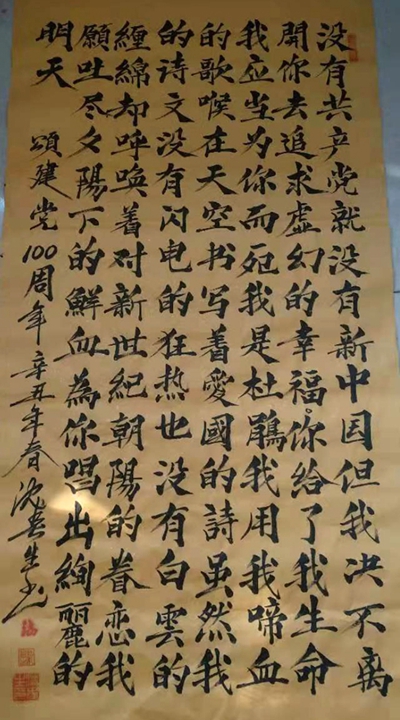 没有共产党就没有新中国但我决不离
開你去追求虚幻的幸福。你给了我生命
我应当为你而死我是杜鵑我用我啼血
的歌喉在天空书写着愛國的詩虽然我
的诗文没有闪电的狂热也没有白雲的
纏綿却呼唤着对新世紀朝陽的眷恋我
願吐尽夕陽下的鮮血為你唱出絢麗的
明天
頌建党100周年辛丑年春沈长生书